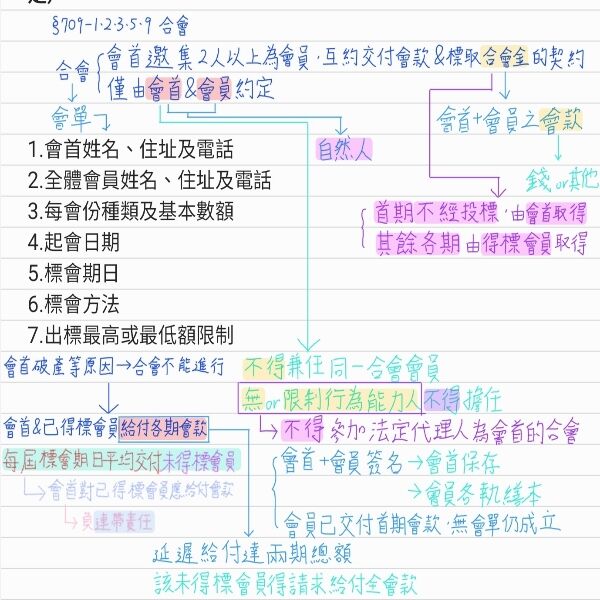 §709-1·2·3·5·9 合會
合會
會首邀集2人以上為會員,互約交付會款&標取合會金的契約
僅由會首&會員約定
會單
會首+會員之會款
自然人
錢or其他
1.會首姓名、住址及電話
2.全體會員姓名、住址及電話
3.每會份種類及基本數額
4.起會日期
5.標會期日
6.標會方法
7.出標最高或最低額限制
首期不經投標,由會首取得
其餘各期由得標會員取得
會首破產等原因→合會不能進行
不得兼任同一合會會員
無or限制行為能力人不得擔任
會首&已得標會員給付各期會款
不得參加法定代理人為會首的合會
每屆標會期日平均交付未得標會員
會首+會員簽名→會首保存
會首對已得標會員應給付會款
→會員各執繕本
負連帶責任
會員已交付首期會款,無會單仍成立
延遲給付達兩期總額
該未得標會員得請求給付全會款